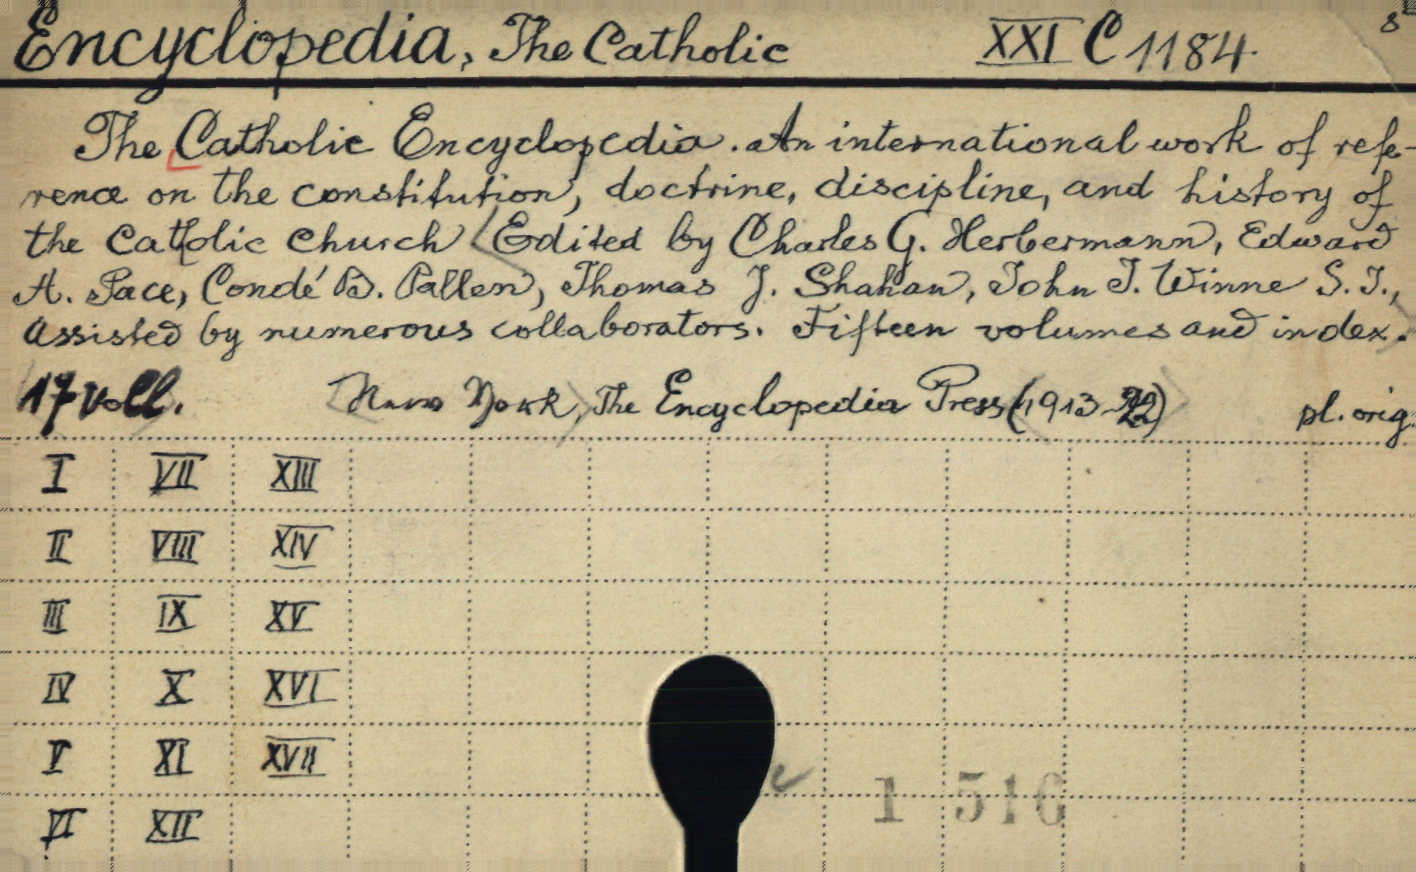 Encyclopedia, The Catholic XXI C 1184.
The Catholic Encyclopedia. An international work of refe-
rence on the constitution, doctrine, discipline, and history of
the Catholic Church Edited by Charles G. Herbermann, Edward
A. Pace, Condé B. Pallen, Thomas J. Shahan, John J. Winne S.J.,
assisted by numerous collaborators. Fifteen volumes and index.
17 voll. New York, The Encyclopedia Press (1913-22) pl. orig.
I VII XIII
II VIII XIV
III IX XV
IV X XVI
V XI XVII
VI XII
1 516